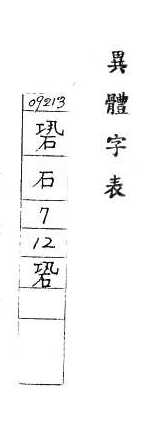 異體字表
09213
石
7
12